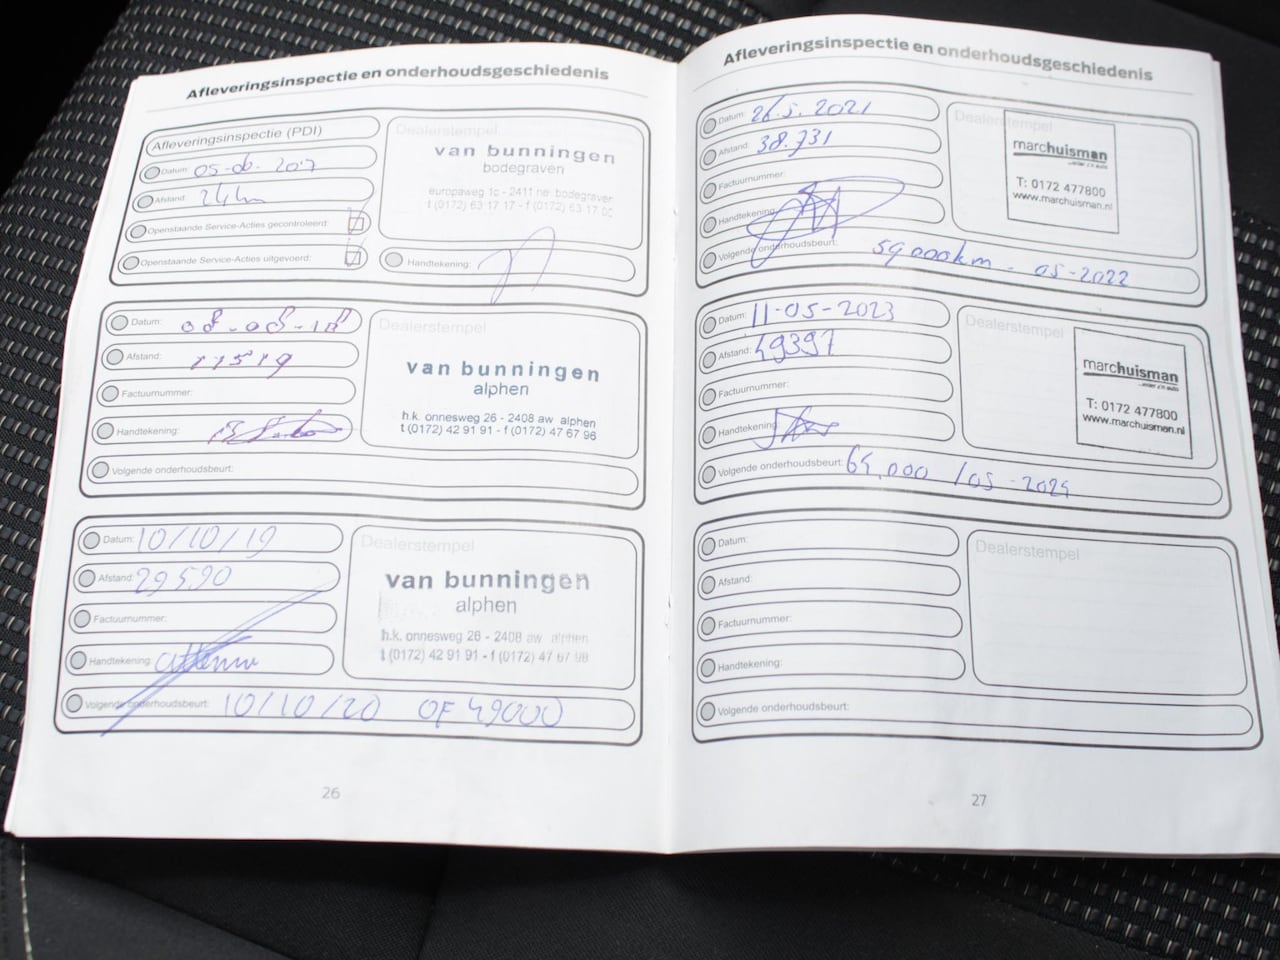 Afleveringsinspectie en onderhoudsgeschiedenis
Afleveringsinspectie (PDI)
Datum: 05-06-2017
Afstand: 24km
Openstaande Service-Acties gecontroleerd:
Openstaande Service-Acties uitgevoerd:
Dealerstempel
van bunningen
bodegraven
europaweg 1c - 2411 ne bodegraven
t (0172) 63 17 17 - f (0172) 63 17 00
Handtekening:
Datum: 08-08-18
Afstand: 11519
Factuurnummer:
Handtekening:
Volgende onderhoudsbeurt:
Dealerstempel
van bunningen
alphen
h.k. onnesweg 26 - 2408 aw alphen
t (0172) 42 91 91 - f (0172) 47 67 98
Datum: 10/10/19
Afstand: 29590
Factuurnummer:
Handtekening:
Volgende onderhoudsbeurt: 10/10/20 OF 49000
Dealerstempel
van bunningen
alphen
h.k. onnesweg 26 - 2408 aw alphen
t (0172) 42 91 91 - f (0172) 47 67 98
26
Afleveringsinspectie en onderhoudsgeschiedenis
Datum: 26.5.2021
Afstand: 38.731
Factuurnummer:
Handtekening:
Volgende onderhoudsbeurt: 59000km - 05-2022
Dealerstempel
marchuisman
T: 0172 477800
www.marchuisman.nl
Datum: 11-05-2023
Afstand: 49397
Factuurnummer:
Handtekening:
Volgende onderhoudsbeurt: 64.000 /05-2024
Dealerstempel
marchuisman
T: 0172 477800
www.marchuisman.nl
Datum:
Afstand:
Factuurnummer:
Handtekening:
Volgende onderhoudsbeurt:
Dealerstempel
27